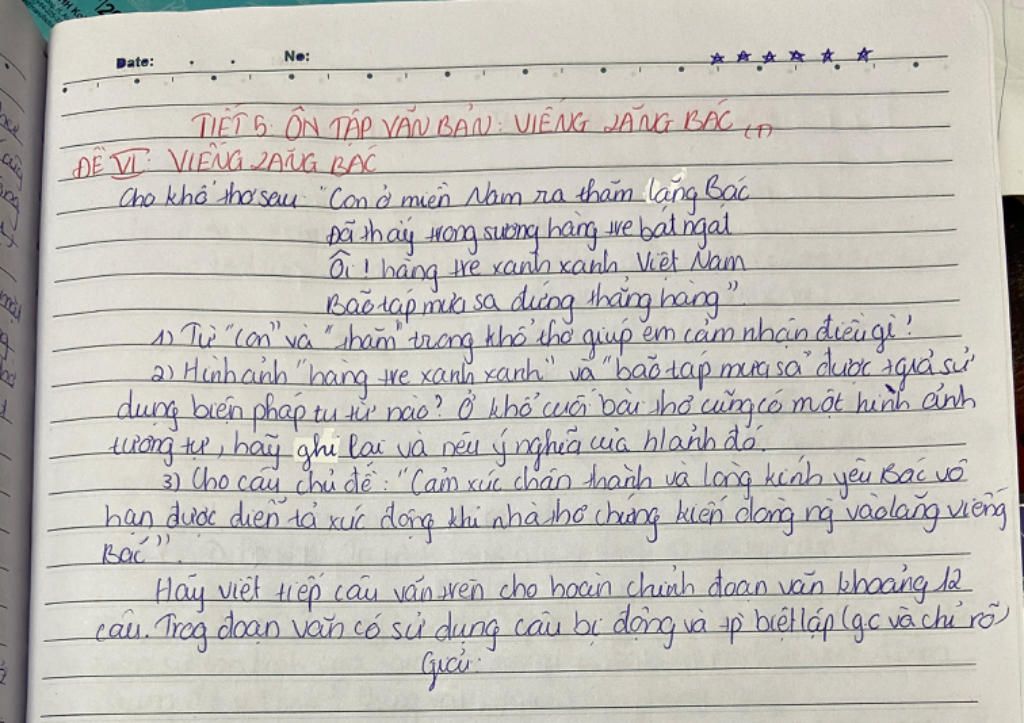 Date: No:
TIẾT 5: ÔN TẬP VĂN BẢN: VIẾNG LĂNG BÁC (1)
ĐỀ VI: VIẾNG LĂNG BÁC
Cho khổ thơ sau "Con ở miền Nam ra thăm lăng Bác
Đã thấy trong sương hàng tre bát ngát
Ôi! hàng tre xanh xanh Việt Nam
Bão táp mưa sa đứng thẳng hàng".
1) Từ "con" và "thăm" trong khổ thơ giúp em cảm nhận điều gì?
2) Hình ảnh "hàng tre xanh xanh" và "bão táp mưa sa" được tgiả sử
dụng biện pháp tu từ nào? Ở khổ cuối bài thơ cũng có một hình ảnh
tương tự, hãy ghi lại và nêu ý nghĩa của h/ảnh đó.
3) Cho câu chủ đề: "Cảm xúc chân thành và lòng kính yêu Bác vô
hạn được diễn tả xúc động khi nhà thơ chứng kiến dòng ng vào lăng viếng
Bác".
Hãy viết tiếp câu văn trên cho hoàn chỉnh đoạn văn khoảng 12
câu. Trog đoạn văn có sử dụng câu bị động và tp biệt lập (g.c và chỉ rõ)
Giải: